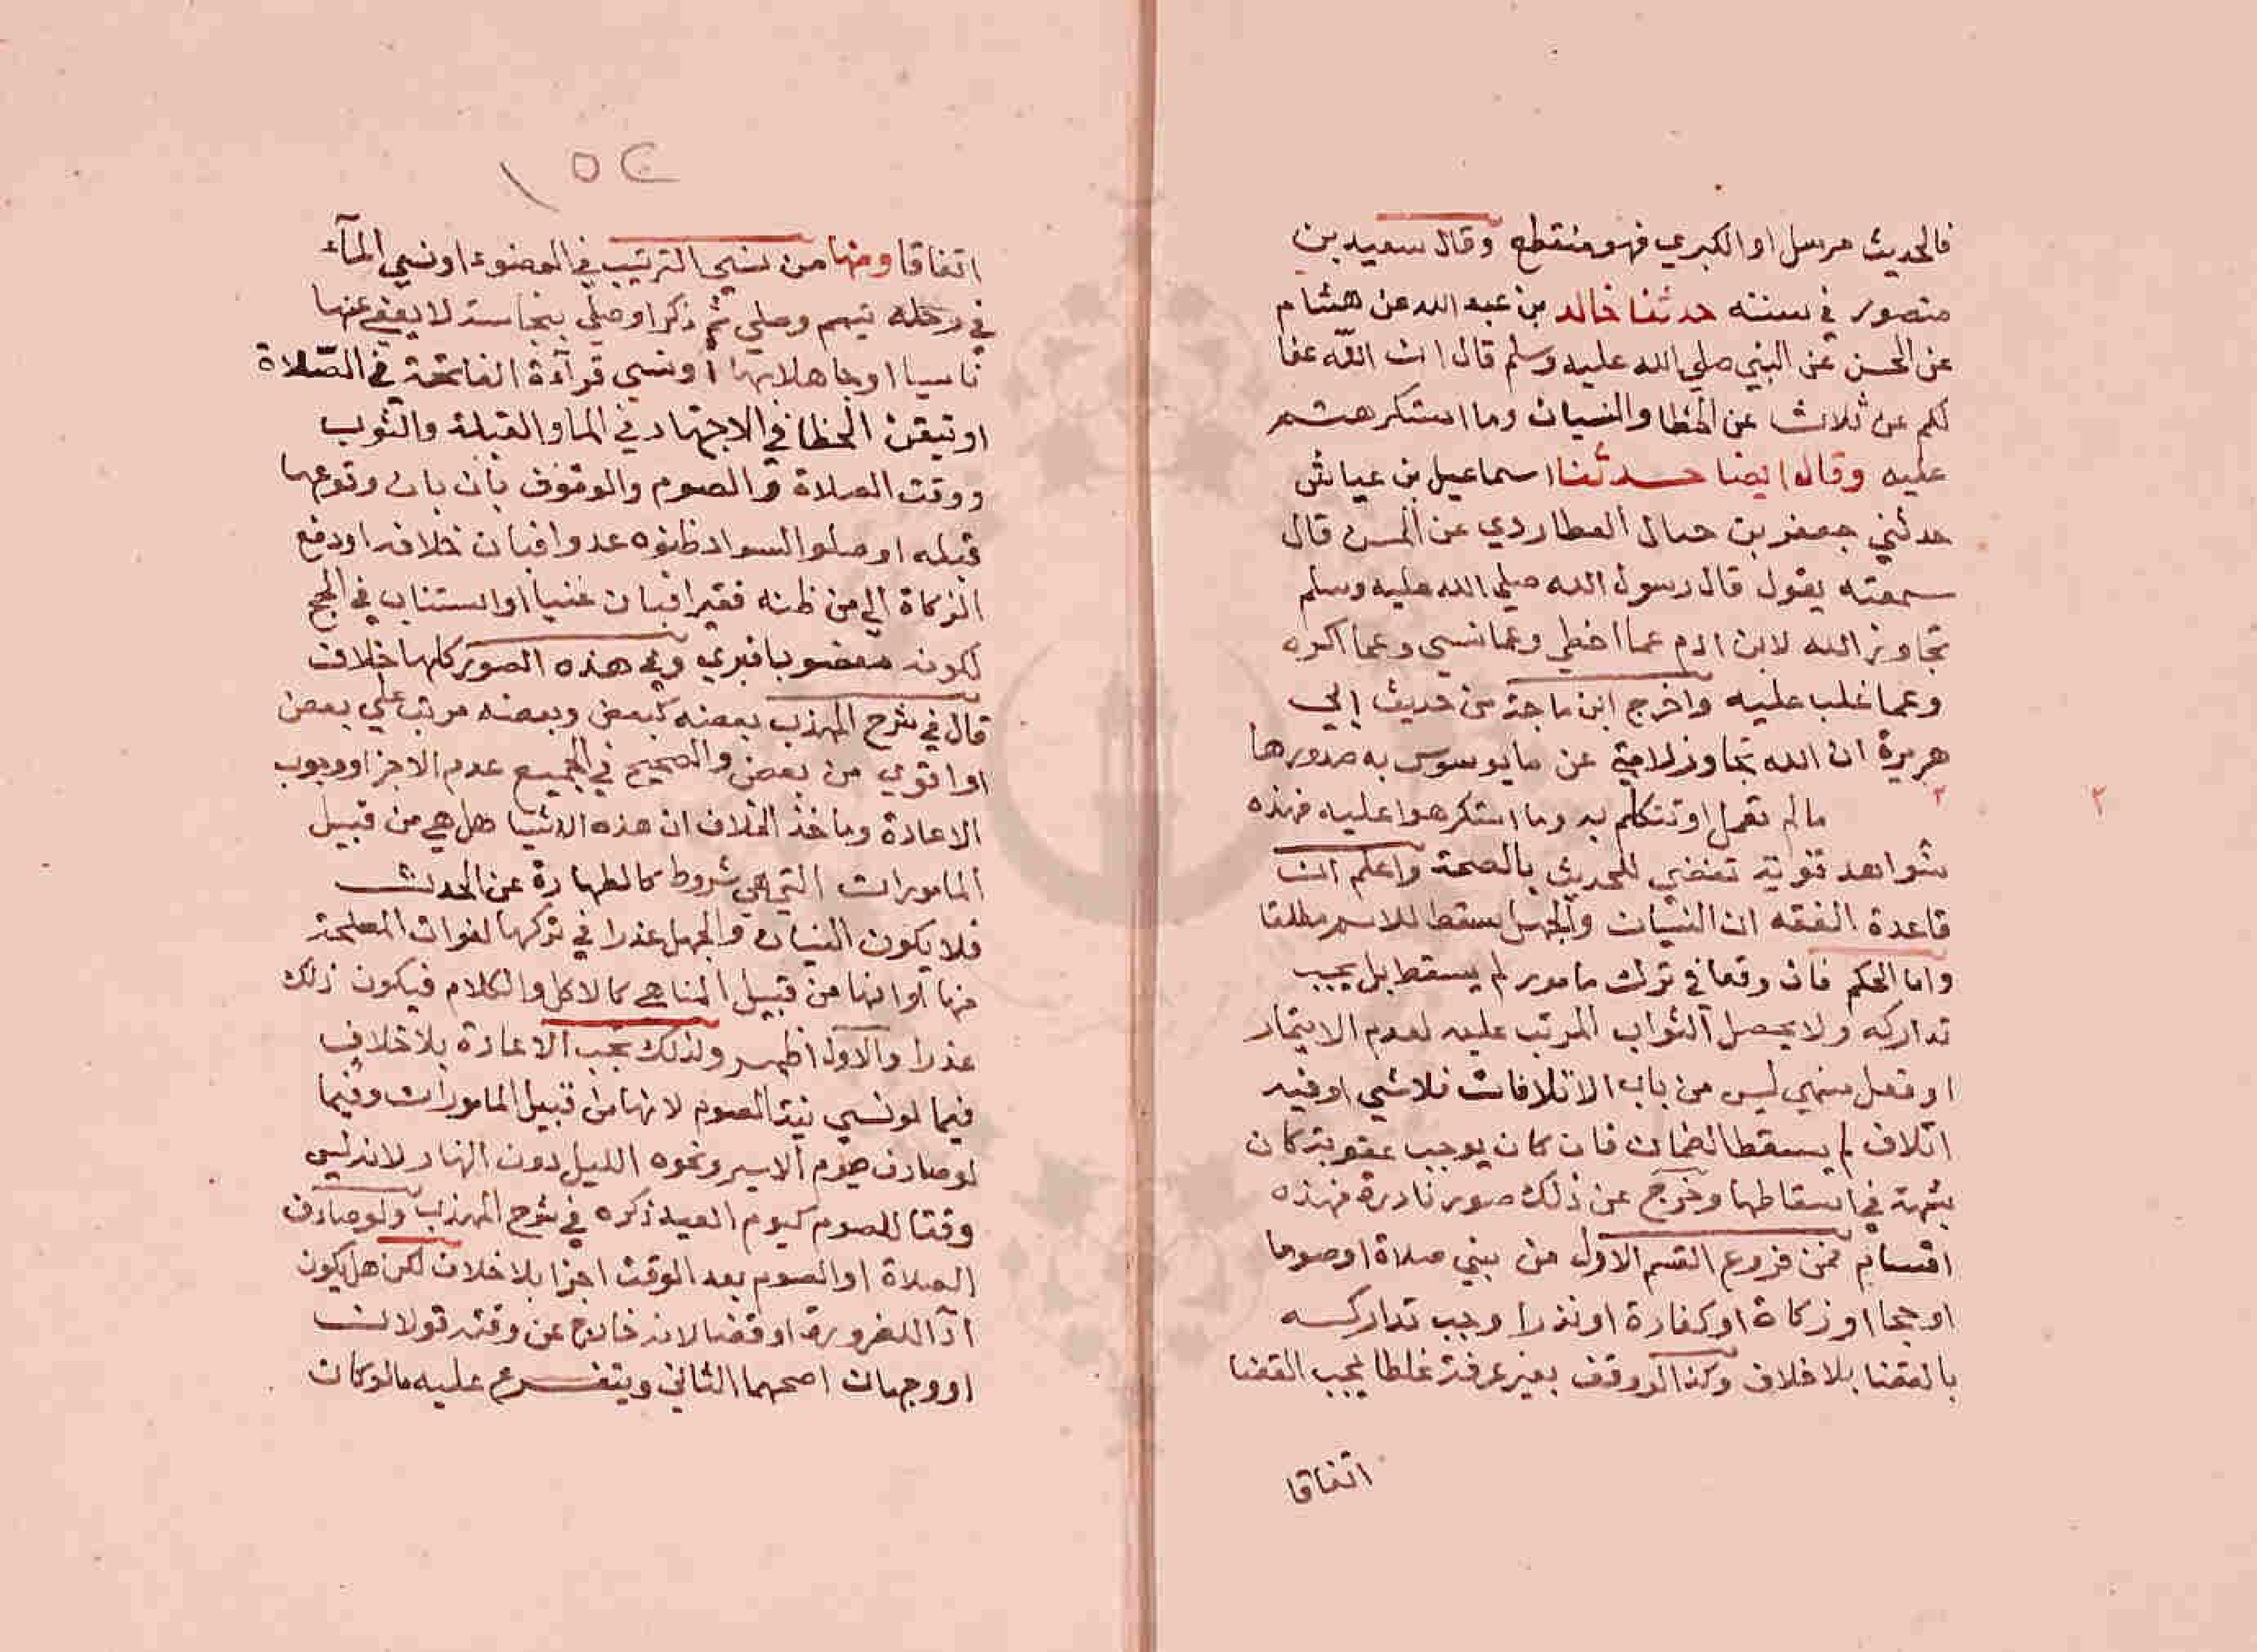 فالحديث مرسل او الكبري فهو منقطع وقال سعيد بن
منصور في سننه حدثنا خالد بن عبد الله عن هشام
عن الحسن عن النبي صلي الله عليه وسلم قال ان الله عفا
لكم عن ثلاث عن الخطا والنسيان وما استكرهتم
عليه وقال ايضا حدثنا اسماعيل بن عياش
حدثني جعفر بن حبال العطاردي عن الحسن قال
سمعته يقول قال رسول الله صلي الله عليه وسلم
تجاوز الله لابن ادم عما اخطي وعما نسي وعما اكره
وعما غلب عليه واخرج ابن ماجة من حديث ابي
هريرة ان الله تجاوز لامتي عن ما يوسوس به صدورها
٢
٢
مالم تعمل او تتكلم به وما استكرهوا عليه فهذه
شواهد قوية تقضي للحديث بالصحة واعلم ان
قاعدة الفقه ان النسيان والجهل يسقط للاسم مطلقا
واما الحكم فان وقعا في ترك مامور لم يسقط بل يجب
تداركه ولا يحصل الثواب المرتب عليه لعدم الايتمار
او فعل منهي ليس من باب الاتلافات فلا شي او فيه
اتلاف لم يسقط الضمان فان كان يوجب عقوبة كان
شبهة في اسقاطها وخرج عن ذلك صور نادرة فهذه
اقسام فمن فروع القسم الاول من نسي صلاة او صوما
او حجا او زكاة او كفارة او نذرا وجب تداركه
بالقضا بلا خلاف وكذا لو وقف بغير عرفة غلطا يجب القضا
اتفاقا
١٥٢
اتفاقا ومنها من نسي الترتيب في الوضوء او نسي المآء
في رحله تيمم وصلي ثم ذكر او صلي بنجاسة لا يعفي عنها
ناسيا او جاهلا بها او نسي قرآءة الفاتحة في الصلاة
او تيقن الخطا في الاجتهاد في الما والقبلة والثوب
ووقت الصلاة والصوم والوقوف بان بان وقوعها
قبله او صلوا لسواد ظنوه عدوا فبان خلافه او دفع
الزكاة الي من ظنه فقيرا فبان غنيا او استناب في الحج
لكونه معضوبا فبري وفي هذه الصور كلها خلاف
قال في شرح المهذب بعضه كبعض وبعضه مرتب علي بعض
او اقوي من بعض والصحيح في الجميع عدم الاجزا ووجوب
الاعادة وماخذ الخلاف ان هذه الاشيا هل هي من قبيل
المامورات التي هي شروط كالطهارة عن الحدث
فلا يكون النسيان والجهل عذرا في تركها لفوات المصلحة
منها او انها من قبيل المناهي كالاكل والكلام فيكون ذلك
عذرا والاول اظهر ولذلك يجب الاعادة بلا خلاف
فيما لو نسي نية الصوم لانها من قبيل المامورات وفيما
لو صادف صوم الاسير ونحوه الليل دون النهار لانه ليس
وقتا للصوم كيوم العيد ذكره في شرح المهذب ولو صادف
الصلاة او الصوم بعد الوقت اجزا بلا خلاف لكن هل يكون
ادآ للضرورة او قضا لانه خارج عن وقته قولان
او وجهان اصحهما الثاني ويتفرع عليه ما لو كان